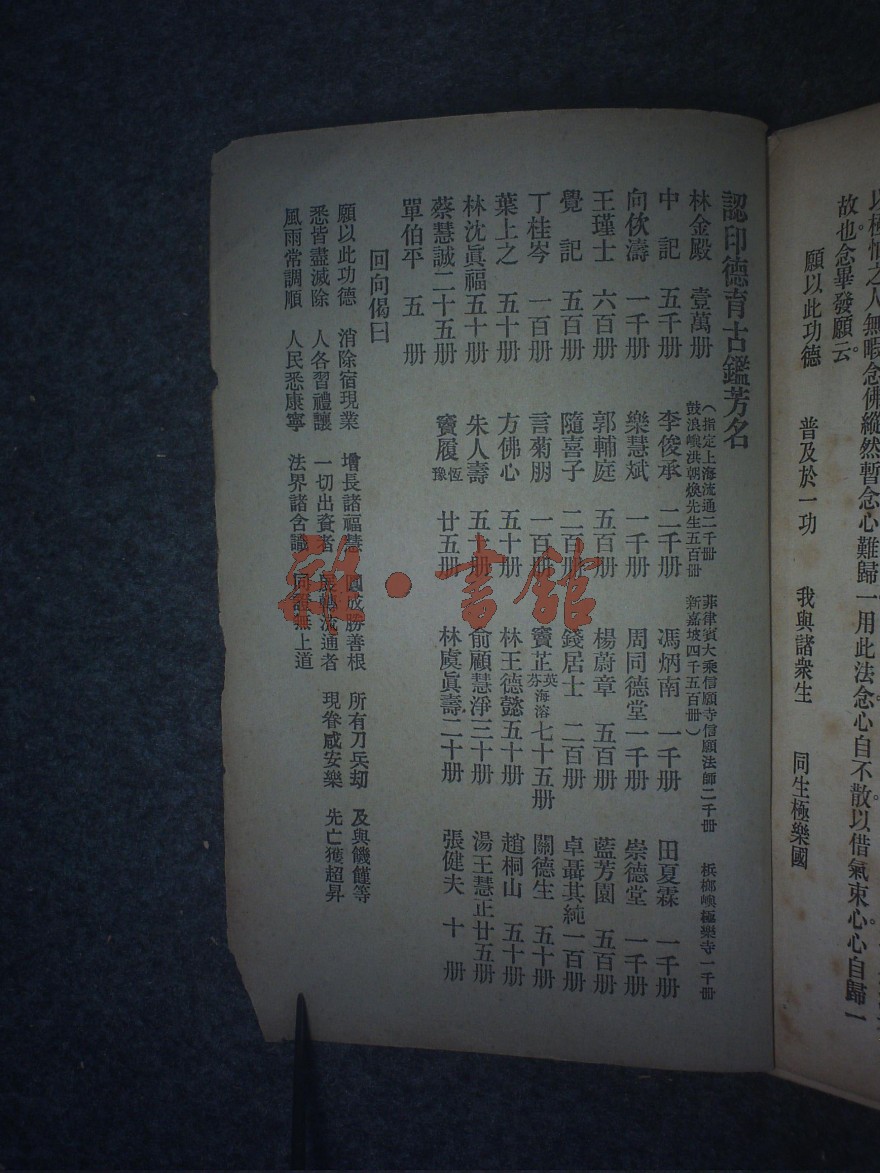 以極惰之人無暇念佛縱然暫念心難歸一用此法念心自不散以借氣束心心自歸一
故也念畢發願云。
願以此功德　普及於一切　我與諸衆生　同生極樂國
認印德育古鑑芳名
林金殿　壹萬册
（指定上海流通二千册　菲律賓大乘信願寺信願法師二千册　梹榔嶼極樂寺一千册
鼓浪嶼洪朝煥先生五百册　新嘉坡四千五百册）
中　記　五千册　李俊承　二千册　馮炳南　一千册　田夏霖　一千册
向佽濤　一千册　樂慧斌　一千册　周同德堂一千册　崇德堂　一千册
王瑾士　六百册　郭輔庭　五百册　楊蔚章　五百册　藍芳園　五百册
覺　記　五百册　隨喜子　二百册　錢居士　二百册　卓聶其純一百册
丁桂岑　一百册　言菊朋　一百册　竇芷英芬海溶七十五册　關德生　五十册
葉上之　五十册　方佛心　五十册　林王德懿五十册　趙桐山　五十册
林沈眞福五十册　朱人壽　五十册　俞顧慧淨三十册　湯王慧正廿五册
蔡慧誠二十五册　竇履恆豫　廿五册　林虞眞壽二十册　張健夫　十　册
單伯平　五　册
回向偈曰
願以此功德　消除宿現業　增長諸福慧　圓成勝善根　所有刀兵劫　及與饑饉等
悉皆盡滅除　人各習禮讓　一切出資者　展轉流通者　現眷咸安樂　先亡獲超昇
風雨常調順　人民悉康寧　法界諸含識　同證無上道
書館